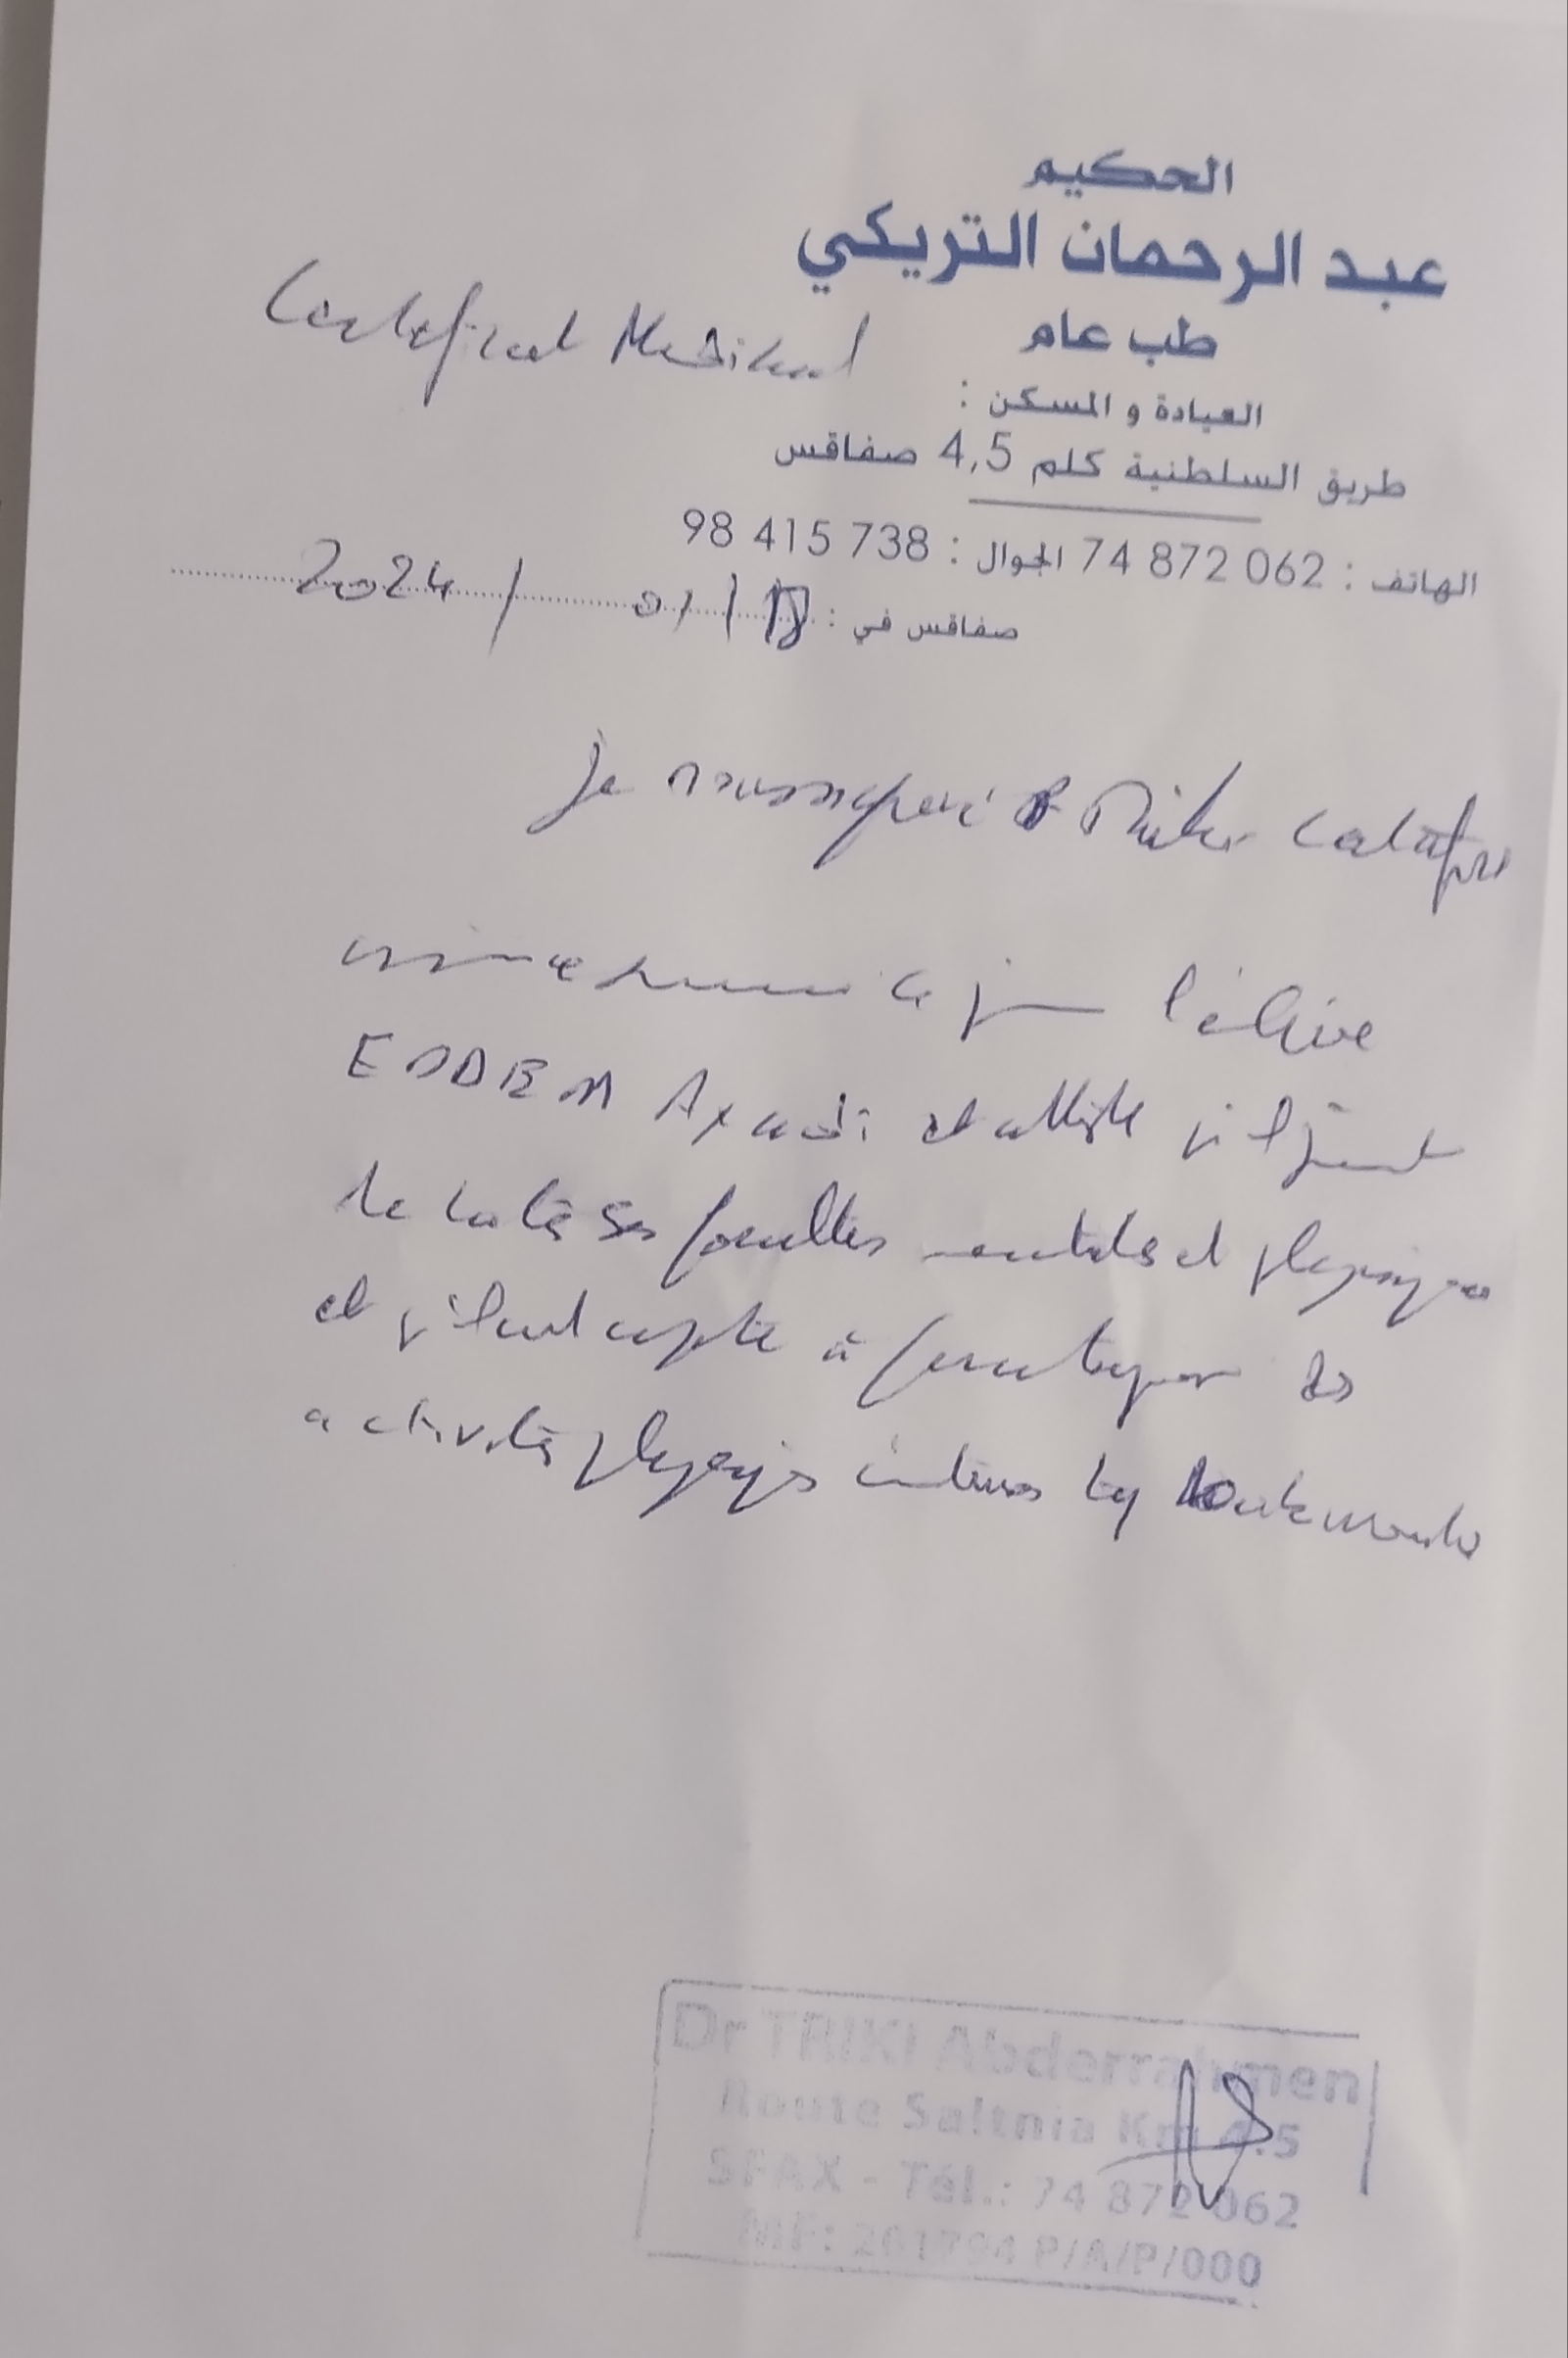 الحكيم
عبد الرحمان التريكي
Certificat Medical
طب عام
العيادة و المسكن :
طريق السلطنية كلم 4,5 صفاقس
الهاتف : 062 872 74 الجوال : 738 415 98
صفاقس في : 18 / 01 / 2024
Je soussigné Dr Triki certifie
ce jour l'élève
EDDEM Ayadi et atteste qu'il jouit
de toutes ses facultés mentales et physiques
et qu'il est apte à pratiquer des
activités physiques
Dr TRIKI Abderrahmen
Route Saltnia Km 4.5
SFAX - Tél.: 74 872 062
MF: 201794 P/A/P/000